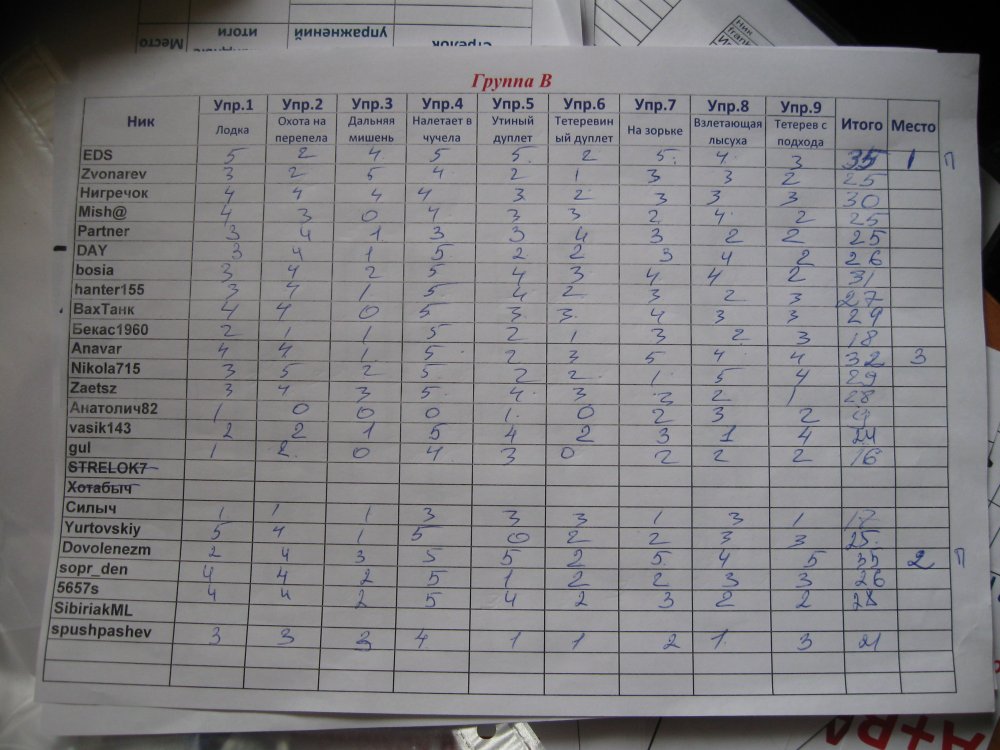 Место
итоги
упражнений
Стрелок
Ник
frank
Группа В
Ник Упр.1 Упр.2 Упр.3 Упр.4 Упр.5 Упр.6 Упр.7 Упр.8 Упр.9 Итого Место
Лодка Охота на перепела Дальняя мишень Налетает в чучела Утиный дуплет Тетеревиный дуплет На зорьке Взлетающая лысуха Тетерев с подхода
EDS 5 2 4 5 5 2 5 4 3 35 1 П
Zvonarev 3 2 5 4 2 1 3 3 2 25
Нигречок 4 4 4 4 3 2 3 3 3 30
Mish@ 4 3 0 4 3 3 2 4 2 25
Partner 3 4 1 3 3 4 3 2 2 25
DAY 3 4 1 5 2 2 3 4 2 26
bosia 3 4 2 5 4 3 4 4 2 31
hanter155 3 4 1 5 4 2 3 2 3 27
ВахТанк 4 4 0 5 3 3 4 3 3 29
Бекас1960 2 1 1 5 2 1 3 2 3 18
Anavar 4 4 1 5 2 3 5 4 4 32 3
Nikola715 3 5 2 5 2 2 1 5 4 29
Zaetsz 3 4 3 5 4 3 3 2 1 28
Анатолич82 1 0 0 0 1 0 2 3 2 9
vasik143 2 2 1 5 4 2 3 1 4 24
gul 1 2 0 4 3 0 2 2 2 16
STRELOK7
Хотабыч
Силыч 1 1 1 3 3 3 1 3 1 17
Yurtovskiy 5 4 1 5 0 2 2 3 3 25
Dovolenezm 2 4 3 5 5 2 5 4 5 35 2 П
sopr_den 4 4 2 5 1 2 2 3 3 26
5657s 4 4 2 5 4 2 3 2 2 28
SibiriakML
spushpashev 3 3 3 4 1 1 2 1 3 21